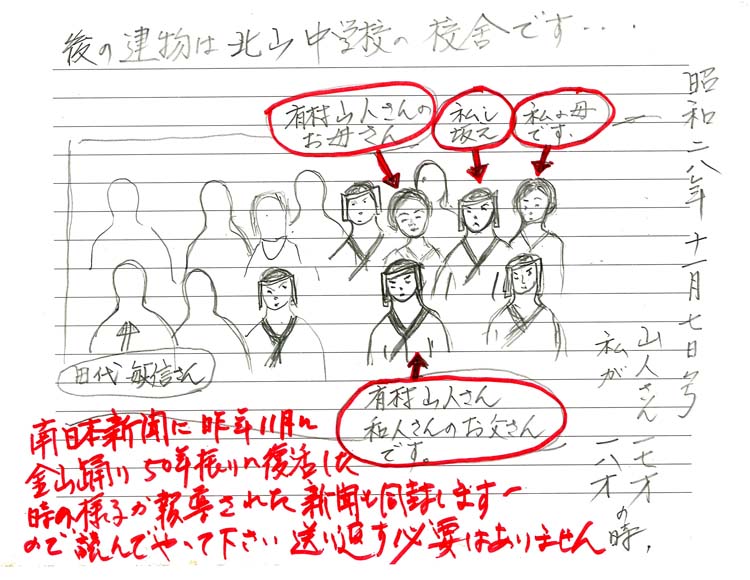 後の建物は北山中学校の校舎です・・・
有村山人さんの
お母さん
私し
坂元
私の母
です.
昭和二八年十一月七日
山人さん 一七才
私が 一八才の時.
田代敏信さん
有村山人さん
和人さんのお父さん
です。
南日本新聞に昨年11月に
金山踊り50年振りに復活した
時の様子が報導された新聞も同封します
ので読んでやって下さい 送り返す必要はありません